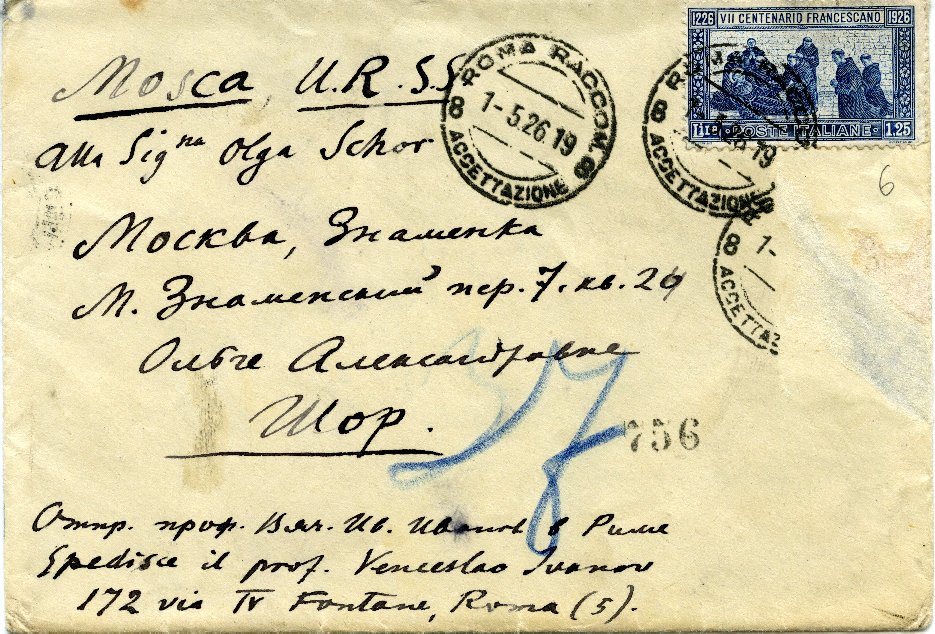 1226 VII CENTENARIO FRANCESCANO 1926
POSTE ITALIANE 1.25
Mosca, U.R.S.S
ROMA RACCOM.
8 1-5.26.19 8
ACCETTAZIONE
8
ACCETTAZIONE
8 1-
ACCETTAZ
6
Alla Signa Olga Schor
Москва, Знаменка
М. Знаменский пер. 7. кв. 24
Ольге Александровне
Шор.
756
Отпр. проф. Вяч. Ив. Иванов в Риме
Spedisce il prof. Venceslao Ivanov
172 via IV Fontane, Roma (5).